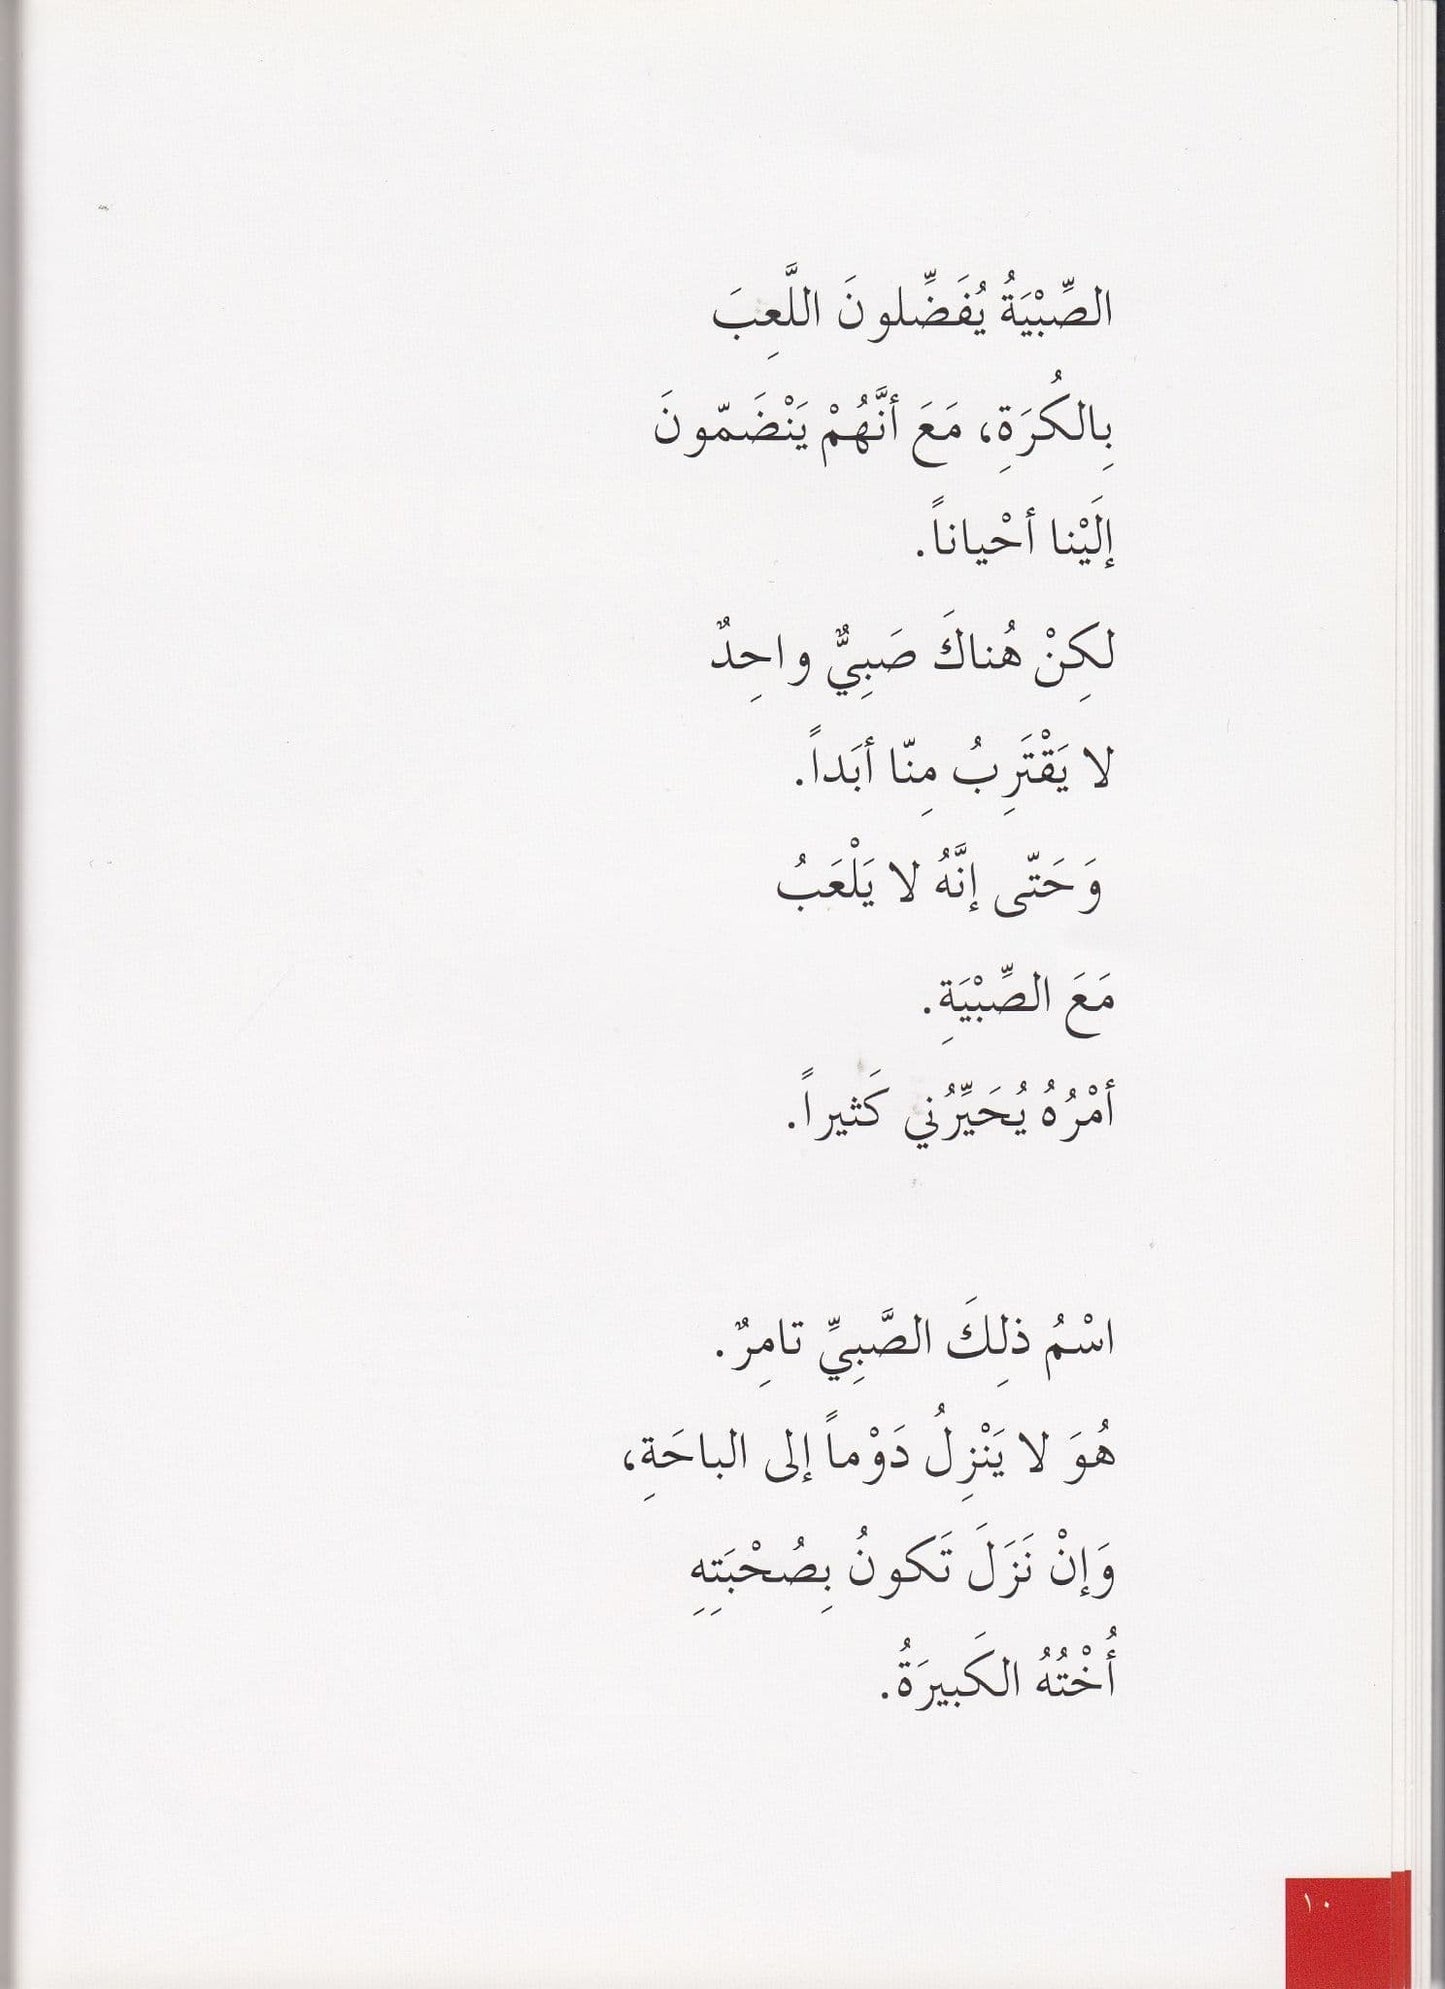 الصِّبْيَةُ يُفَضِّلونَ اللَّعِبَ
بِالكُرَةِ، مَعَ أنَّهُمْ يَنْضَمّونَ
إلَيْنا أحْياناً.
لكِنْ هُناكَ صَبِيٌّ واحِدٌ
لا يَقْتَرِبُ مِنّا أبَداً.
وَحَتّى إنَّهُ لا يَلْعَبُ
مَعَ الصِّبْيَةِ.
أمْرُهُ يُحَيِّرُني كَثيراً.
اسْمُ ذلِكَ الصَّبِيِّ تامِرٌ.
هُوَ لا يَنْزِلُ دَوْماً إلى الباحَةِ،
وَإنْ نَزَلَ تَكونُ بِصُحْبَتِهِ
أُخْتُهُ الكَبيرَةُ.
١٠